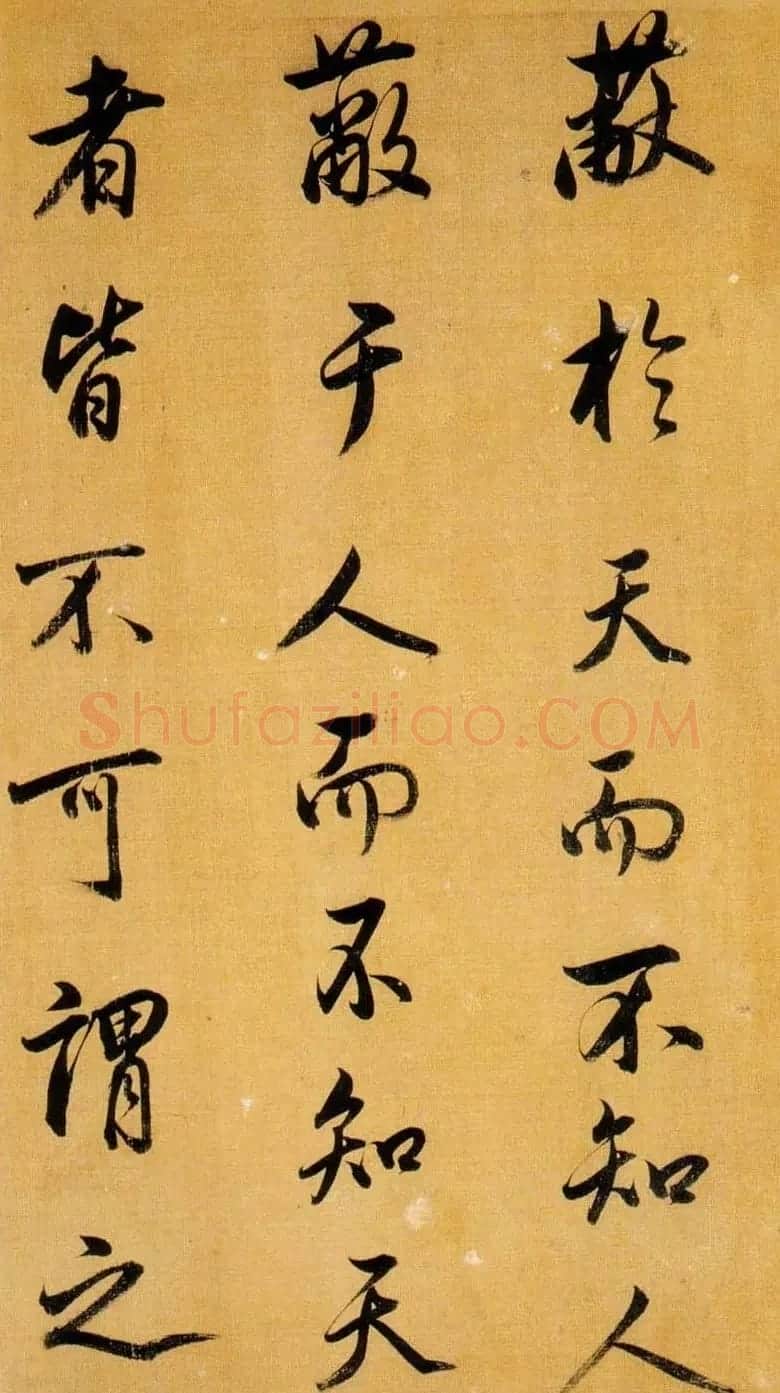 蔽於天而不知人
蔽于人而不知天
者皆不可謂之
Shufaziliao.COM